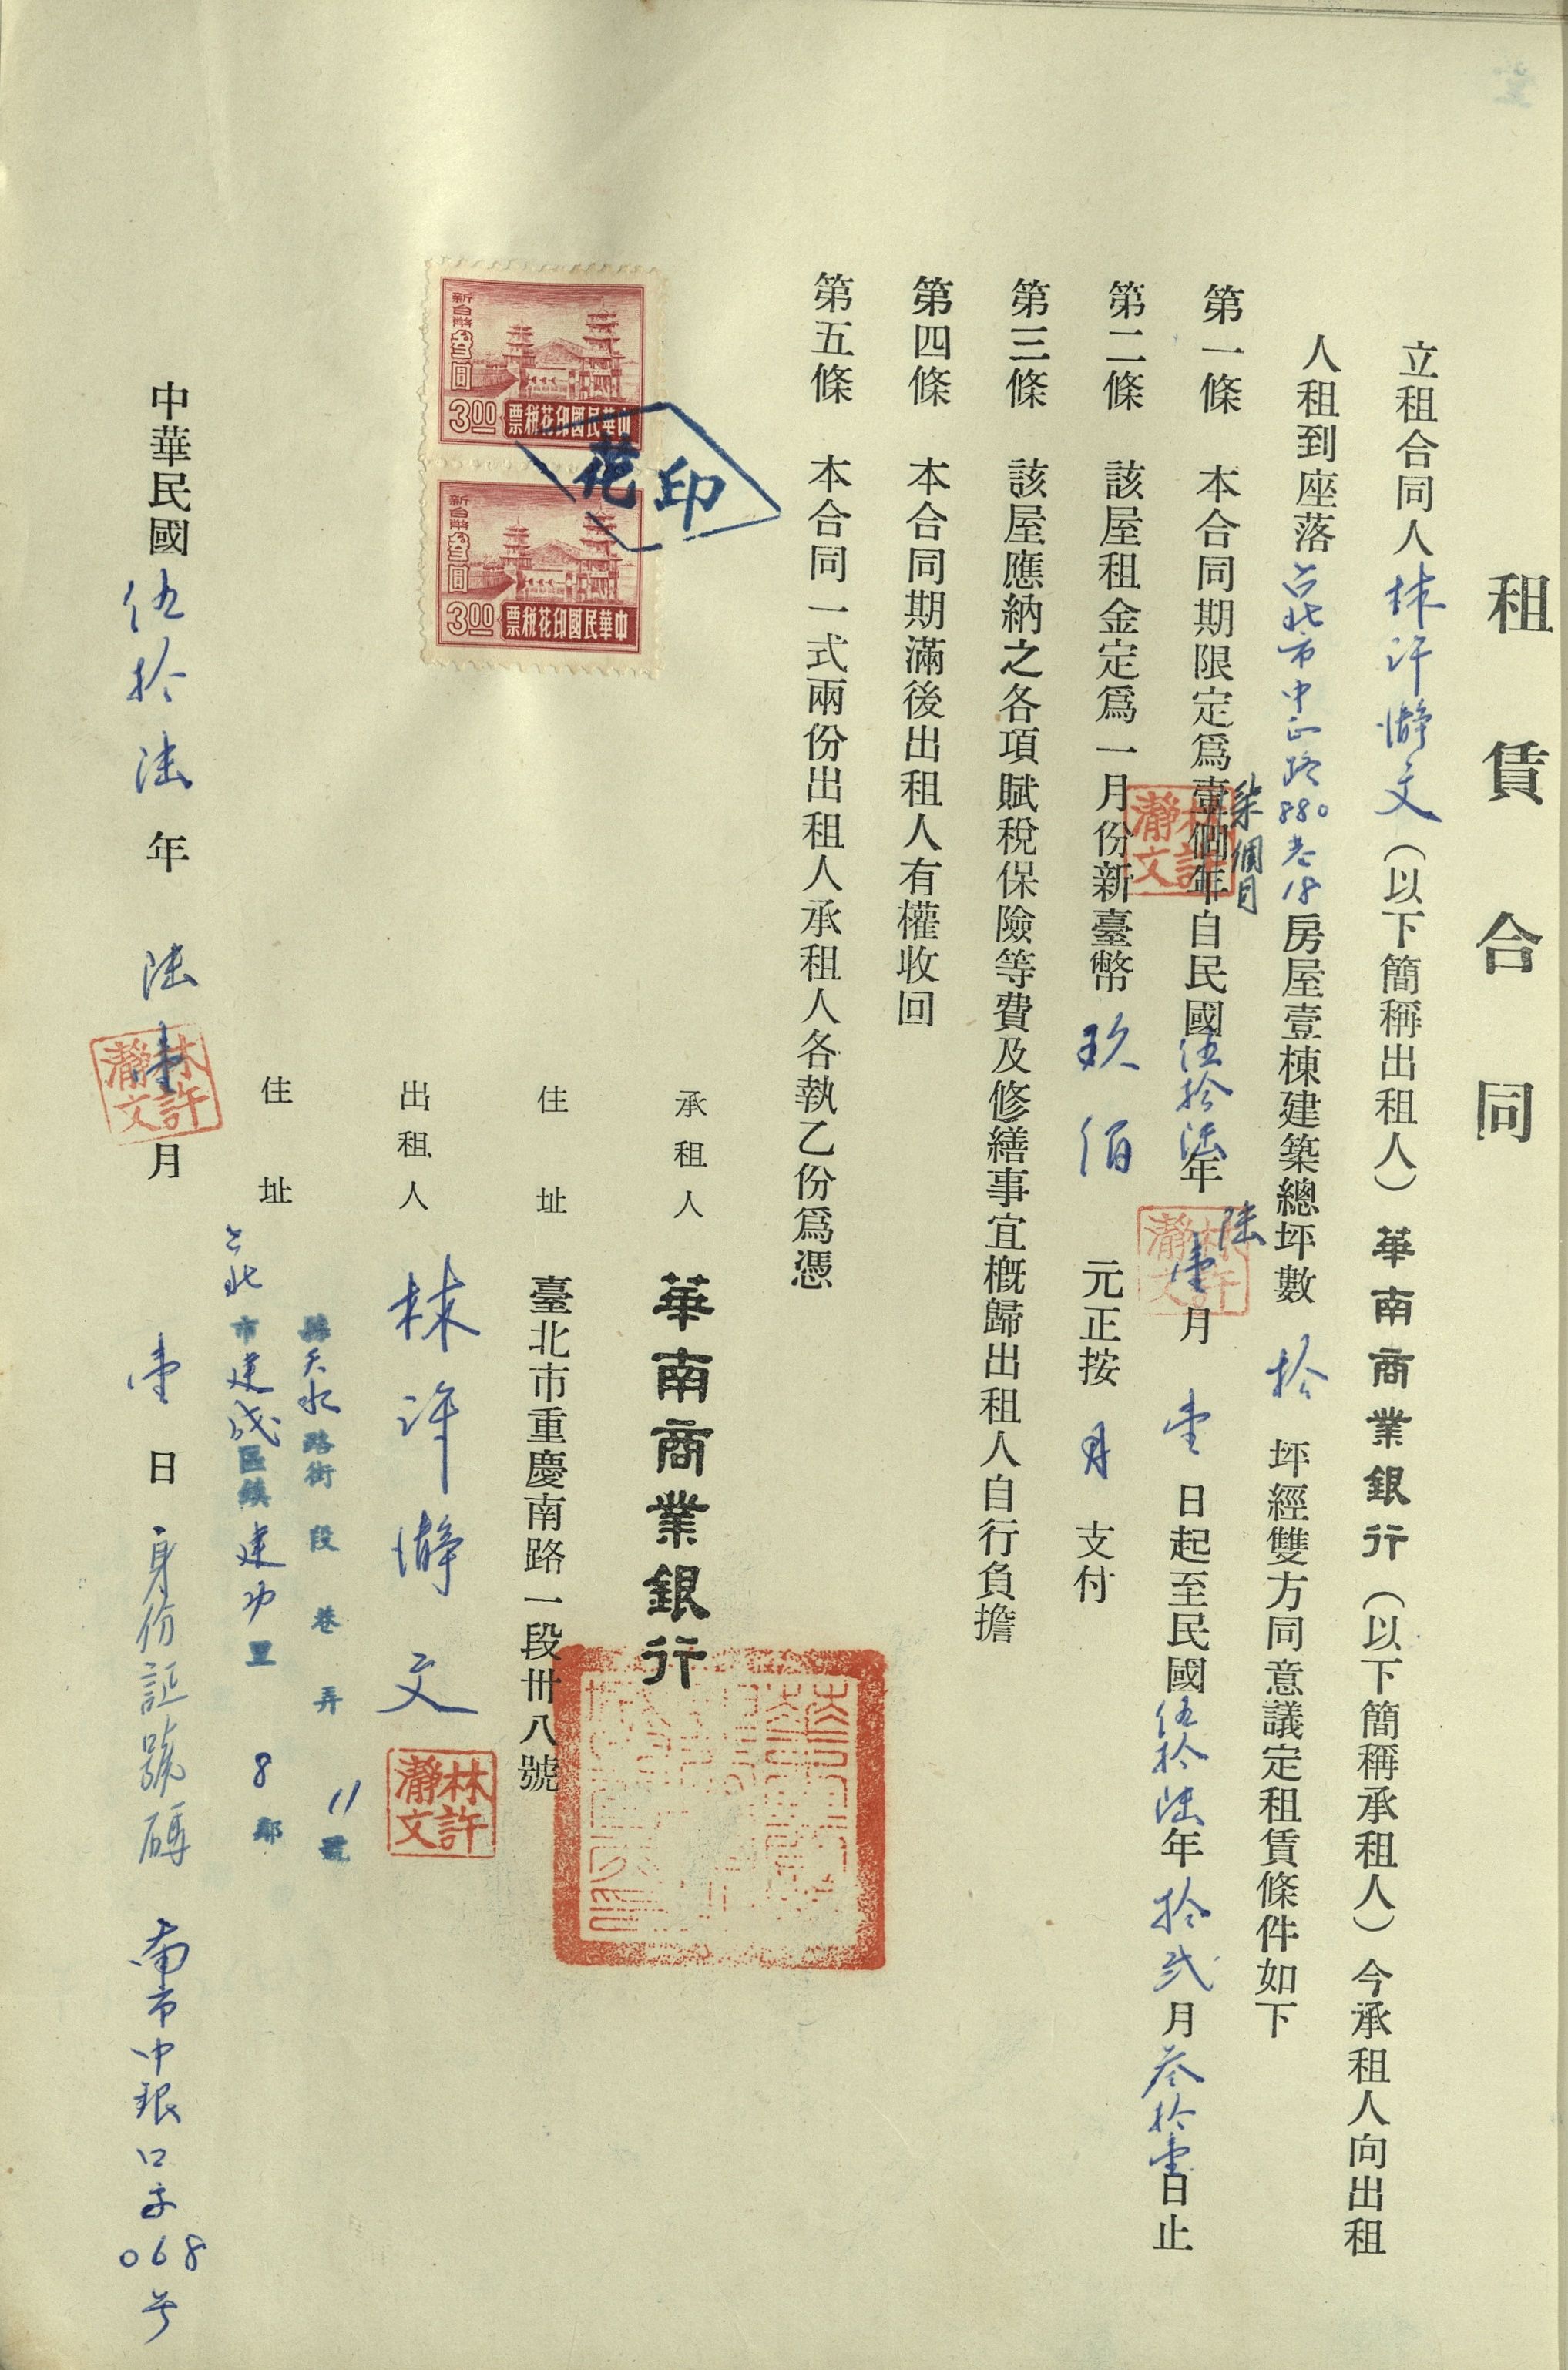 租賃合同
立租合同人林許瀞文（以下簡稱出租人）華南商業銀行（以下簡稱承租人）今承租人向出租
人租到座落台北市中正路880巷18房屋壹棟建築總坪數拾坪經雙方同意議定租賃條件如下
柒個月
第一條 本合同期限定爲壹個年自民國伍拾陸年陸壹月壹日起至民國伍拾陸年拾貳月叁拾壹日止
第二條 該屋租金定爲一月份新臺幣玖佰元正按月支付
第三條 該屋應納之各項賦稅保險等費及修繕事宜概歸出租人自行負擔
第四條 本合同期滿後出租人有權收回
第五條 本合同一式兩份出租人承租人各執乙份爲憑
印花
新台幣叁圓
3.00
中華民國印花稅票
新台幣叁圓
3.00
中華民國印花稅票
承租人 華南商業銀行
住址 臺北市重慶南路一段卅八號
出租人 林許瀞文
林許瀞文
住址 台北市建成區鎮建功里8鄰
縣天水路街 段 巷 弄 11號
中華民國伍拾陸年陸壹月壹日 身份証號碼 南市中銀口字068号
林許瀞文
林許瀞文
林許瀞文